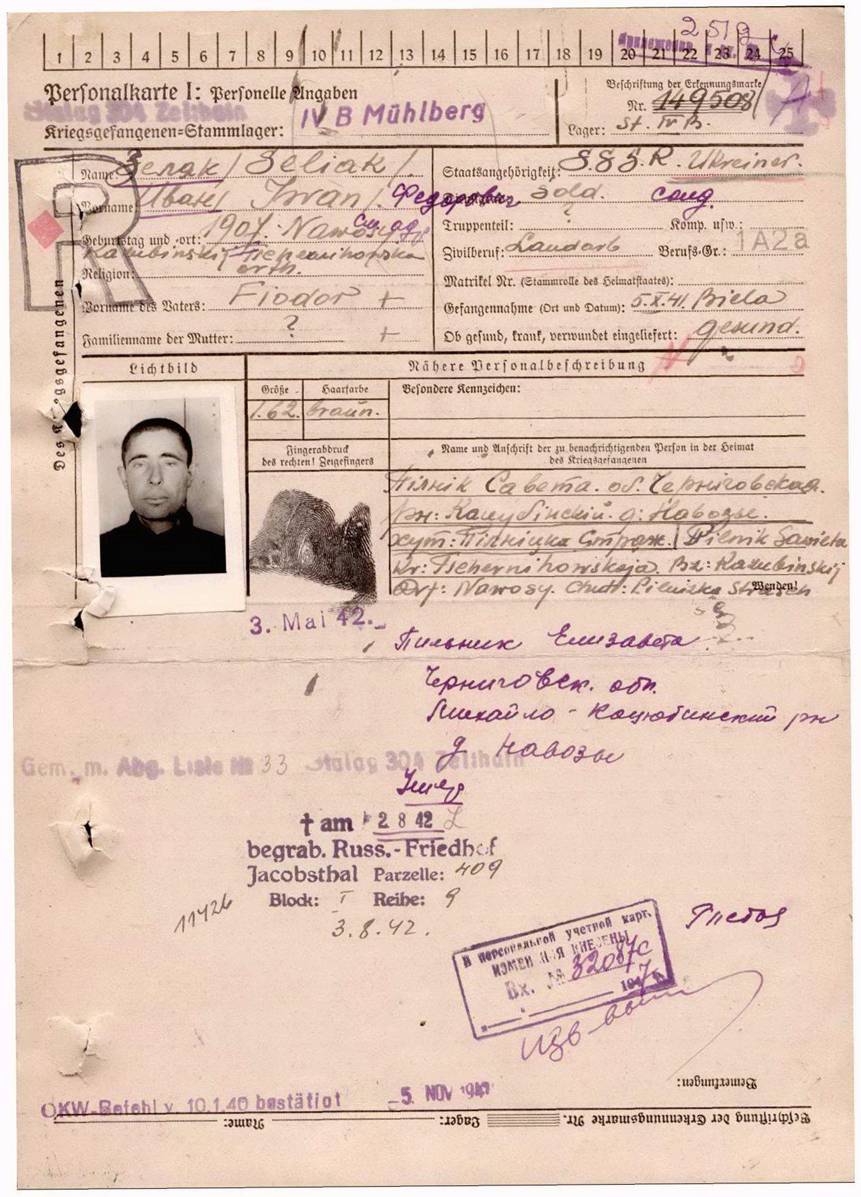 1 2 3 4 5 6 7 8 9 10 11 12 13 14 15 16 17 18 19 20 21 22 23 24 25
Personalkarte I: Personelle Angaben
Beschriftung der Erkennungsmarke
Stalag 304 Zeithain
Nr. 149508
Kriegsgefangenen-Stammlager: IV B Mühlberg
Lager: St. IV B.
R
Des Kriegsgefangenen
Name: Зеляк / Seliak /
Staatsangehörigkeit: S.S.S.R. Ukreiner.
Vorname: Иван / Iwan / Федорович
Sold. солд
Truppenteil: ? Komp. usw.:
Geburtstag und -ort: 1907. Nawosy
Zivilberuf: Landarb Berufs-Gr.: 1A2a
Religion: orth.
Matrikel Nr. (Stammrolle des Heimatstaates):
Vorname des Vaters: Fiodor +
Gefangennahme (Ort und Datum): 5.X.41. Biela
Familienname der Mutter: ? +
Ob gesund, krank, verwundet eingeliefert: gesund.
Lichtbild
Nähere Personalbeschreibung
Größe Haarfarbe Besondere Kennzeichen:
1.62. braun.
Fingerabdruck
des rechten! Zeigefingers
Name und Anschrift der zu benachrichtigenden Person in der Heimat
des Kriegsgefangenen
Пілнік Савета. об. Черниговская.
рн: Кацубінскій. д: Навозы.
хут: Пілніцка Страж. / Pilnik Sawieta
Kr: Tschernihowskaja. Bz: Kazubinskij
Ort: Nawosy. Chutt: Pilnizka Strasch
Wenden!
3. Mai 42.
Пильник Елизавета
Черниговск. обл.
Михайло-Коцюбинский рн
д Навозы
Gem. m. Abg. Liste № 33 Stalag 304 Zeithain
Умер
† am 2 8 42
begrab. Russ.-Friedhof
Jacobsthal Parzelle: 409
Block: I Reihe: 9
11426
3.8.42.
В персональной учетной карт.
ИЗМЕНЕНИЯ ВНЕСЕНЫ
Вх. № 32087с
1947 г.
Bemerkungen:
OKW-Befehl v. 10.1.40 bestätigt
-5. NOV 1941
Beschriftung der Erkennungsmarke Nr. Lager: Name: